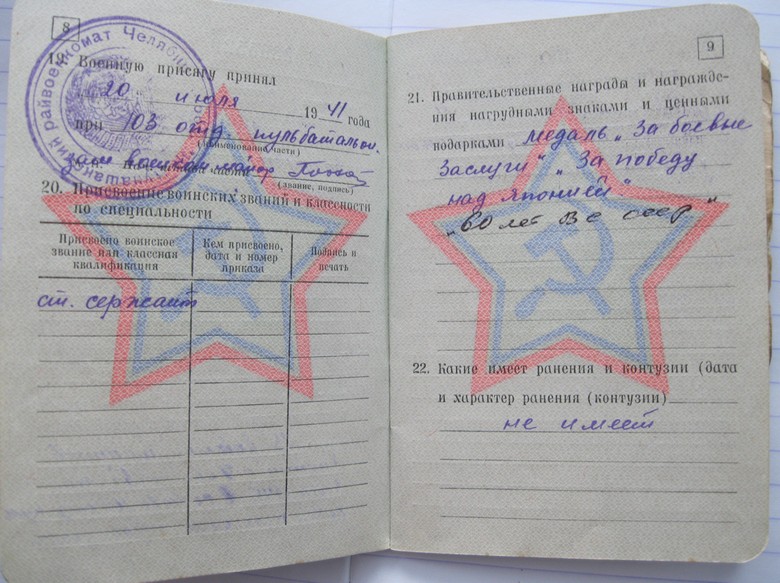 8
19. Военную присягу принял
20 июля 1941 года
при 103 отд пульбатальон.
(наименование части)
(звание, подпись)
20. Присвоение воинских званий и классности
по специальности
Присвоено воинское звание или классная квалификация
Кем присвоено, дата и номер приказа
Подпись и печать
ст. сержант
райвоенкомат Челябин
9
21. Правительственные награды и награжде-
ния нагрудными знаками и ценными
подарками медаль „За боевые
заслуги" „За победу
над Японией"
„60 лет ВС СССР"
22. Какие имеет ранения и контузии (дата
и характер ранения (контузии)
не имеет